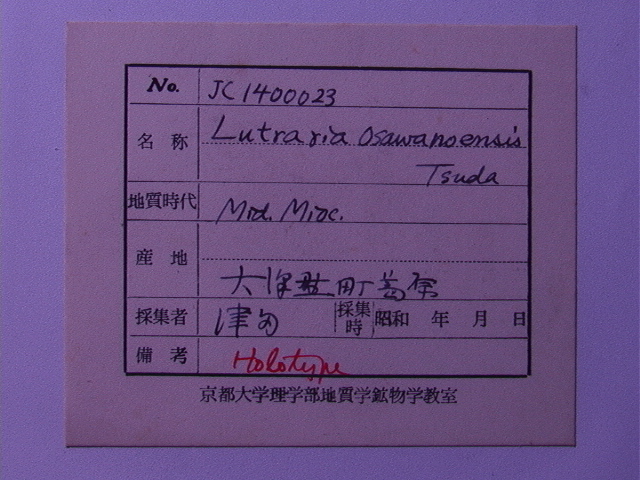 No. JC1400023
名称 Lutraria osawanoensis
Tsuda
地質時代 Mid. Mioc.
産地
大沢野町葛原
採集者 津田 採集時 昭和 年 月 日
備考 Holotype
京都大学理学部地質学鉱物学教室